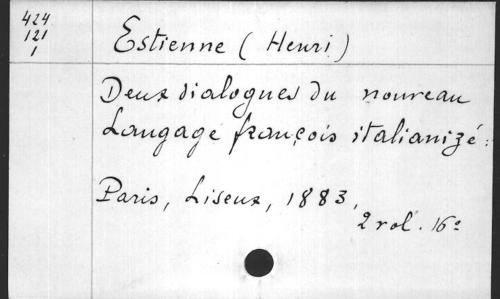 424
121
1
Estienne (Henri)
Deux dialogues du nouveau
Langage françois italianizé :
Paris, Liseux, 1883,
2 vol. 16º